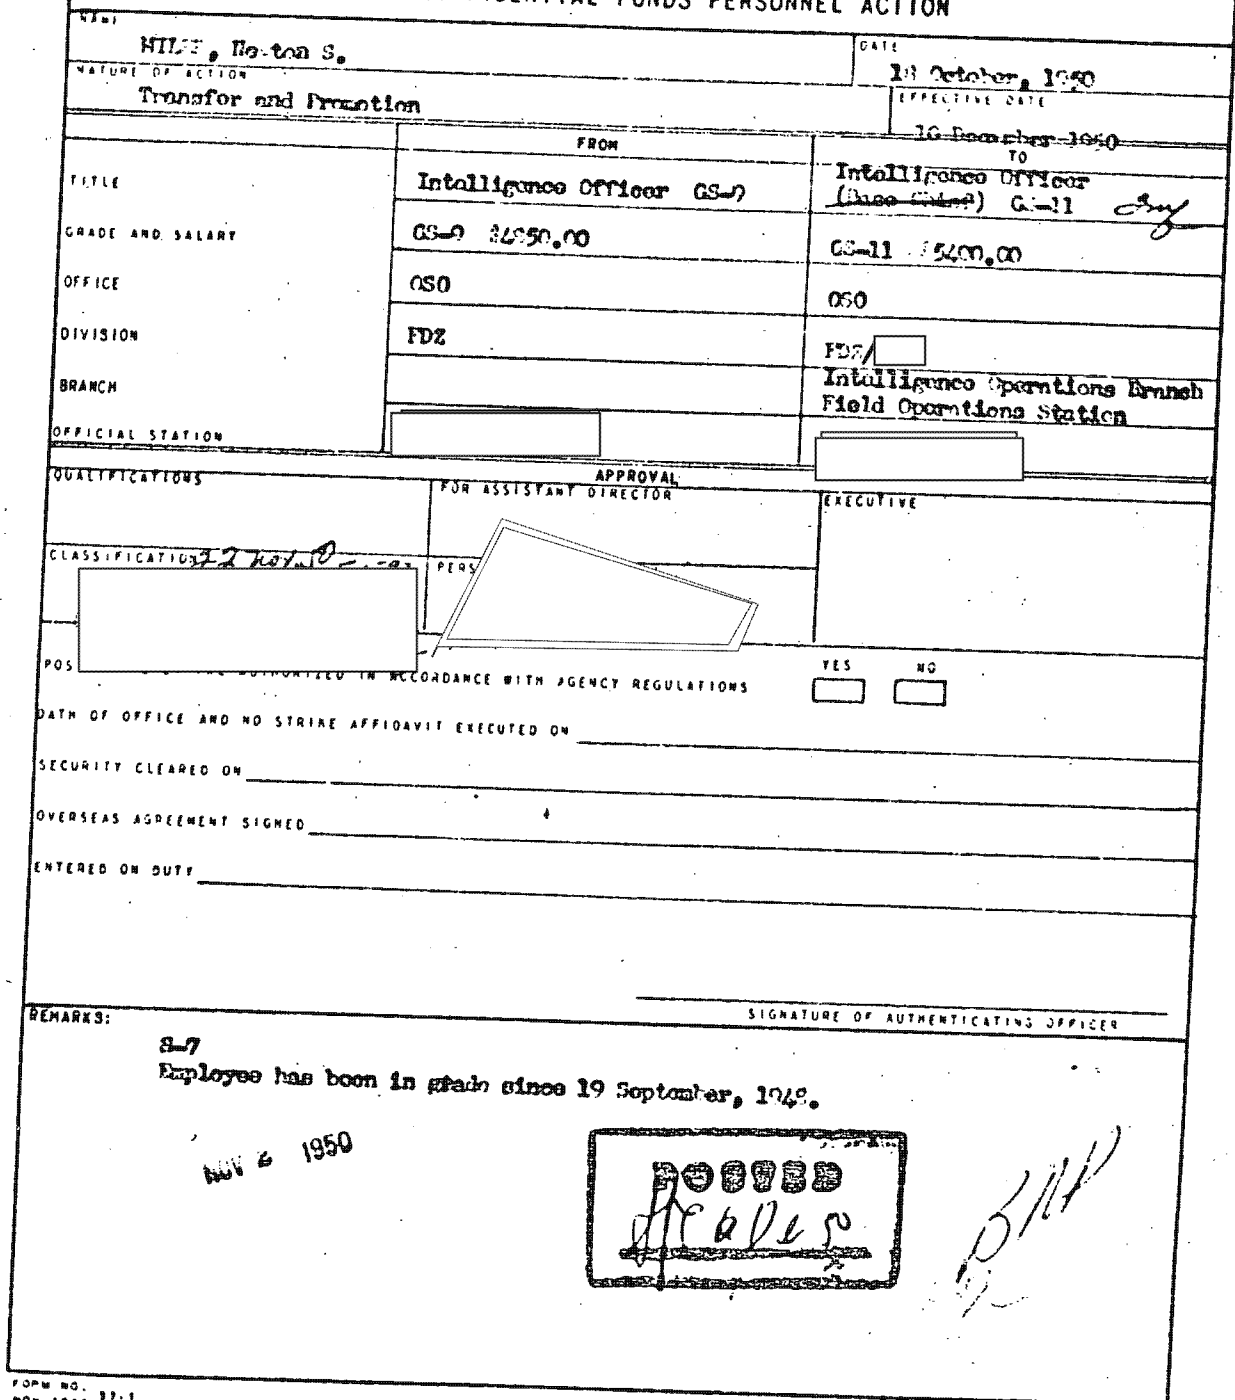 FUNDS PERSONNEL ACTION
NAME
S.
DATE
October, 1950
NATURE OF ACTION
Transfer and Promotion
EFFECTIVE DATE
December 1950
FROM
TO
TITLE
Intelligence Officer GS-9
Intelligence Officer
(Base Chief) GS-11
GRADE AND SALARY
GS-9
GS-11 5400.00
OFFICE
OSO
OSO
DIVISION
FDZ
FDZ/
BRANCH
Intelligence Operations Branch
Field Operations Station
OFFICIAL STATION
APPROVAL
QUALIFICATIONS
FOR ASSISTANT DIRECTOR
EXECUTIVE
CLASSIFICATION
22 Nov.
PERS
POS
AUTHORIZED IN ACCORDANCE WITH AGENCY REGULATIONS
YES
NO
OATH OF OFFICE AND NO STRIKE AFFIDAVIT EXECUTED ON
SECURITY CLEARED ON
OVERSEAS AGREEMENT SIGNED
ENTERED ON DUTY
SIGNATURE OF AUTHENTICATING OFFICER
REMARKS:
S-7
Employee has been in grade since 19 September, 1948.
NOV 1950
POSTED
FORM NO. 37-1